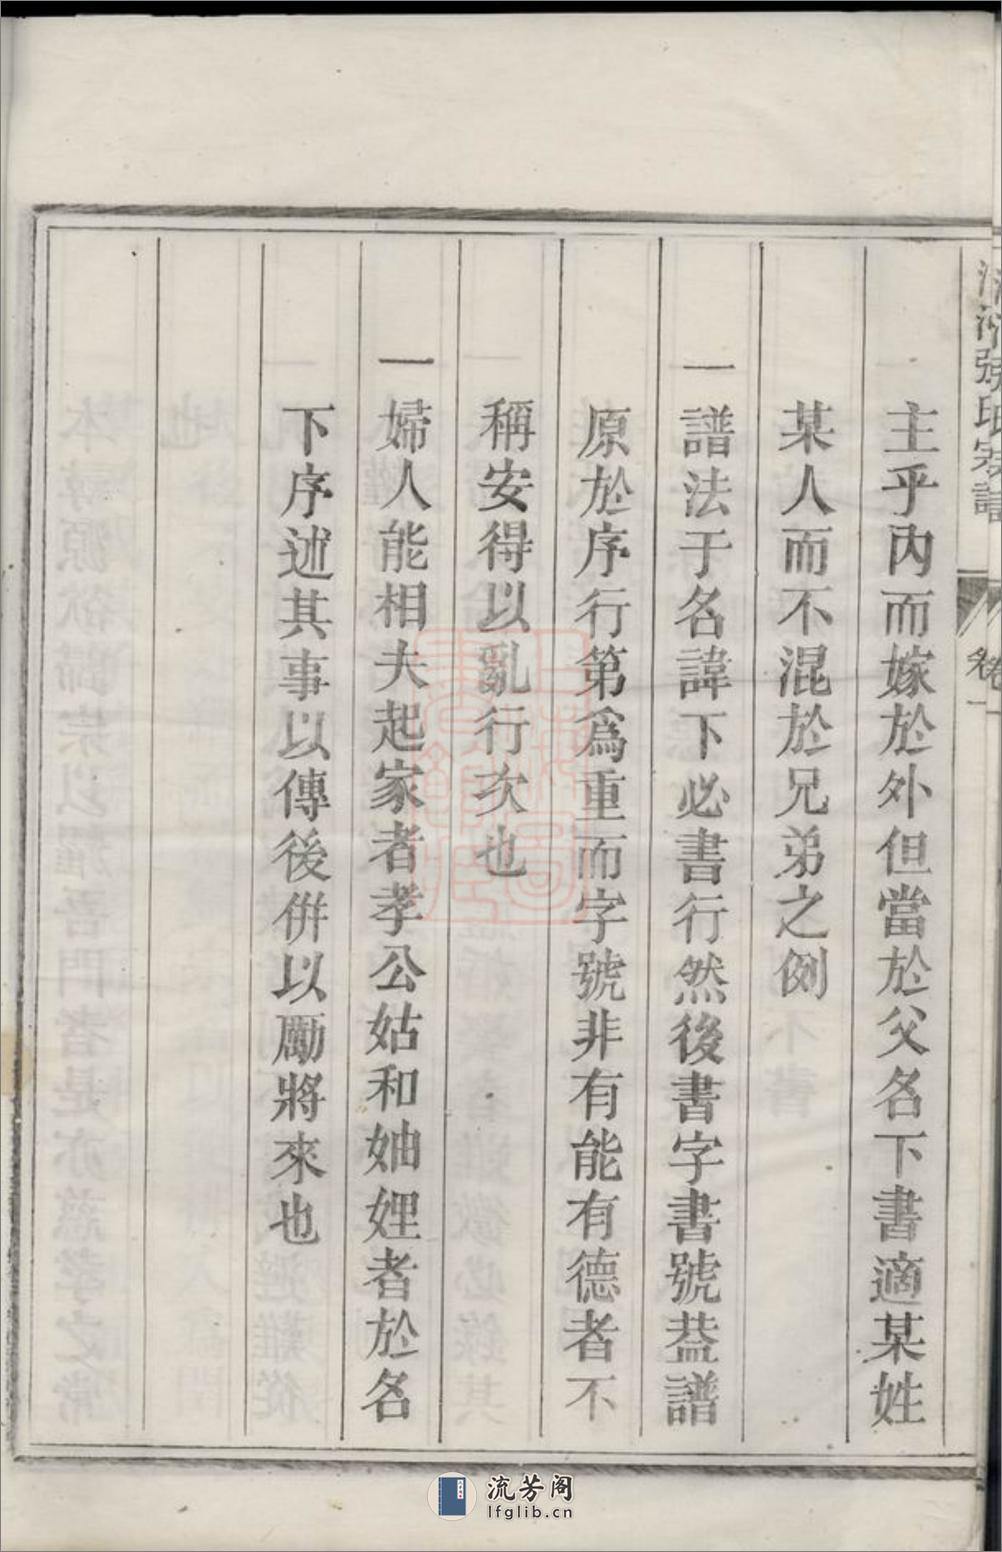 清河張氏宗譜
卷一
主乎內而嫁於外但當於父名下書適某姓
某人而不混於兄弟之側
一譜法于名諱下必書行然後書字書號葢譜
原於序行第為重而字號非有能有德者不
稱安得以亂行次也
一婦人能相夫起家者孝公姑和妯娌者於名
下序述其事以傳後併以勵將來也
流芳阁
lfglib.cn